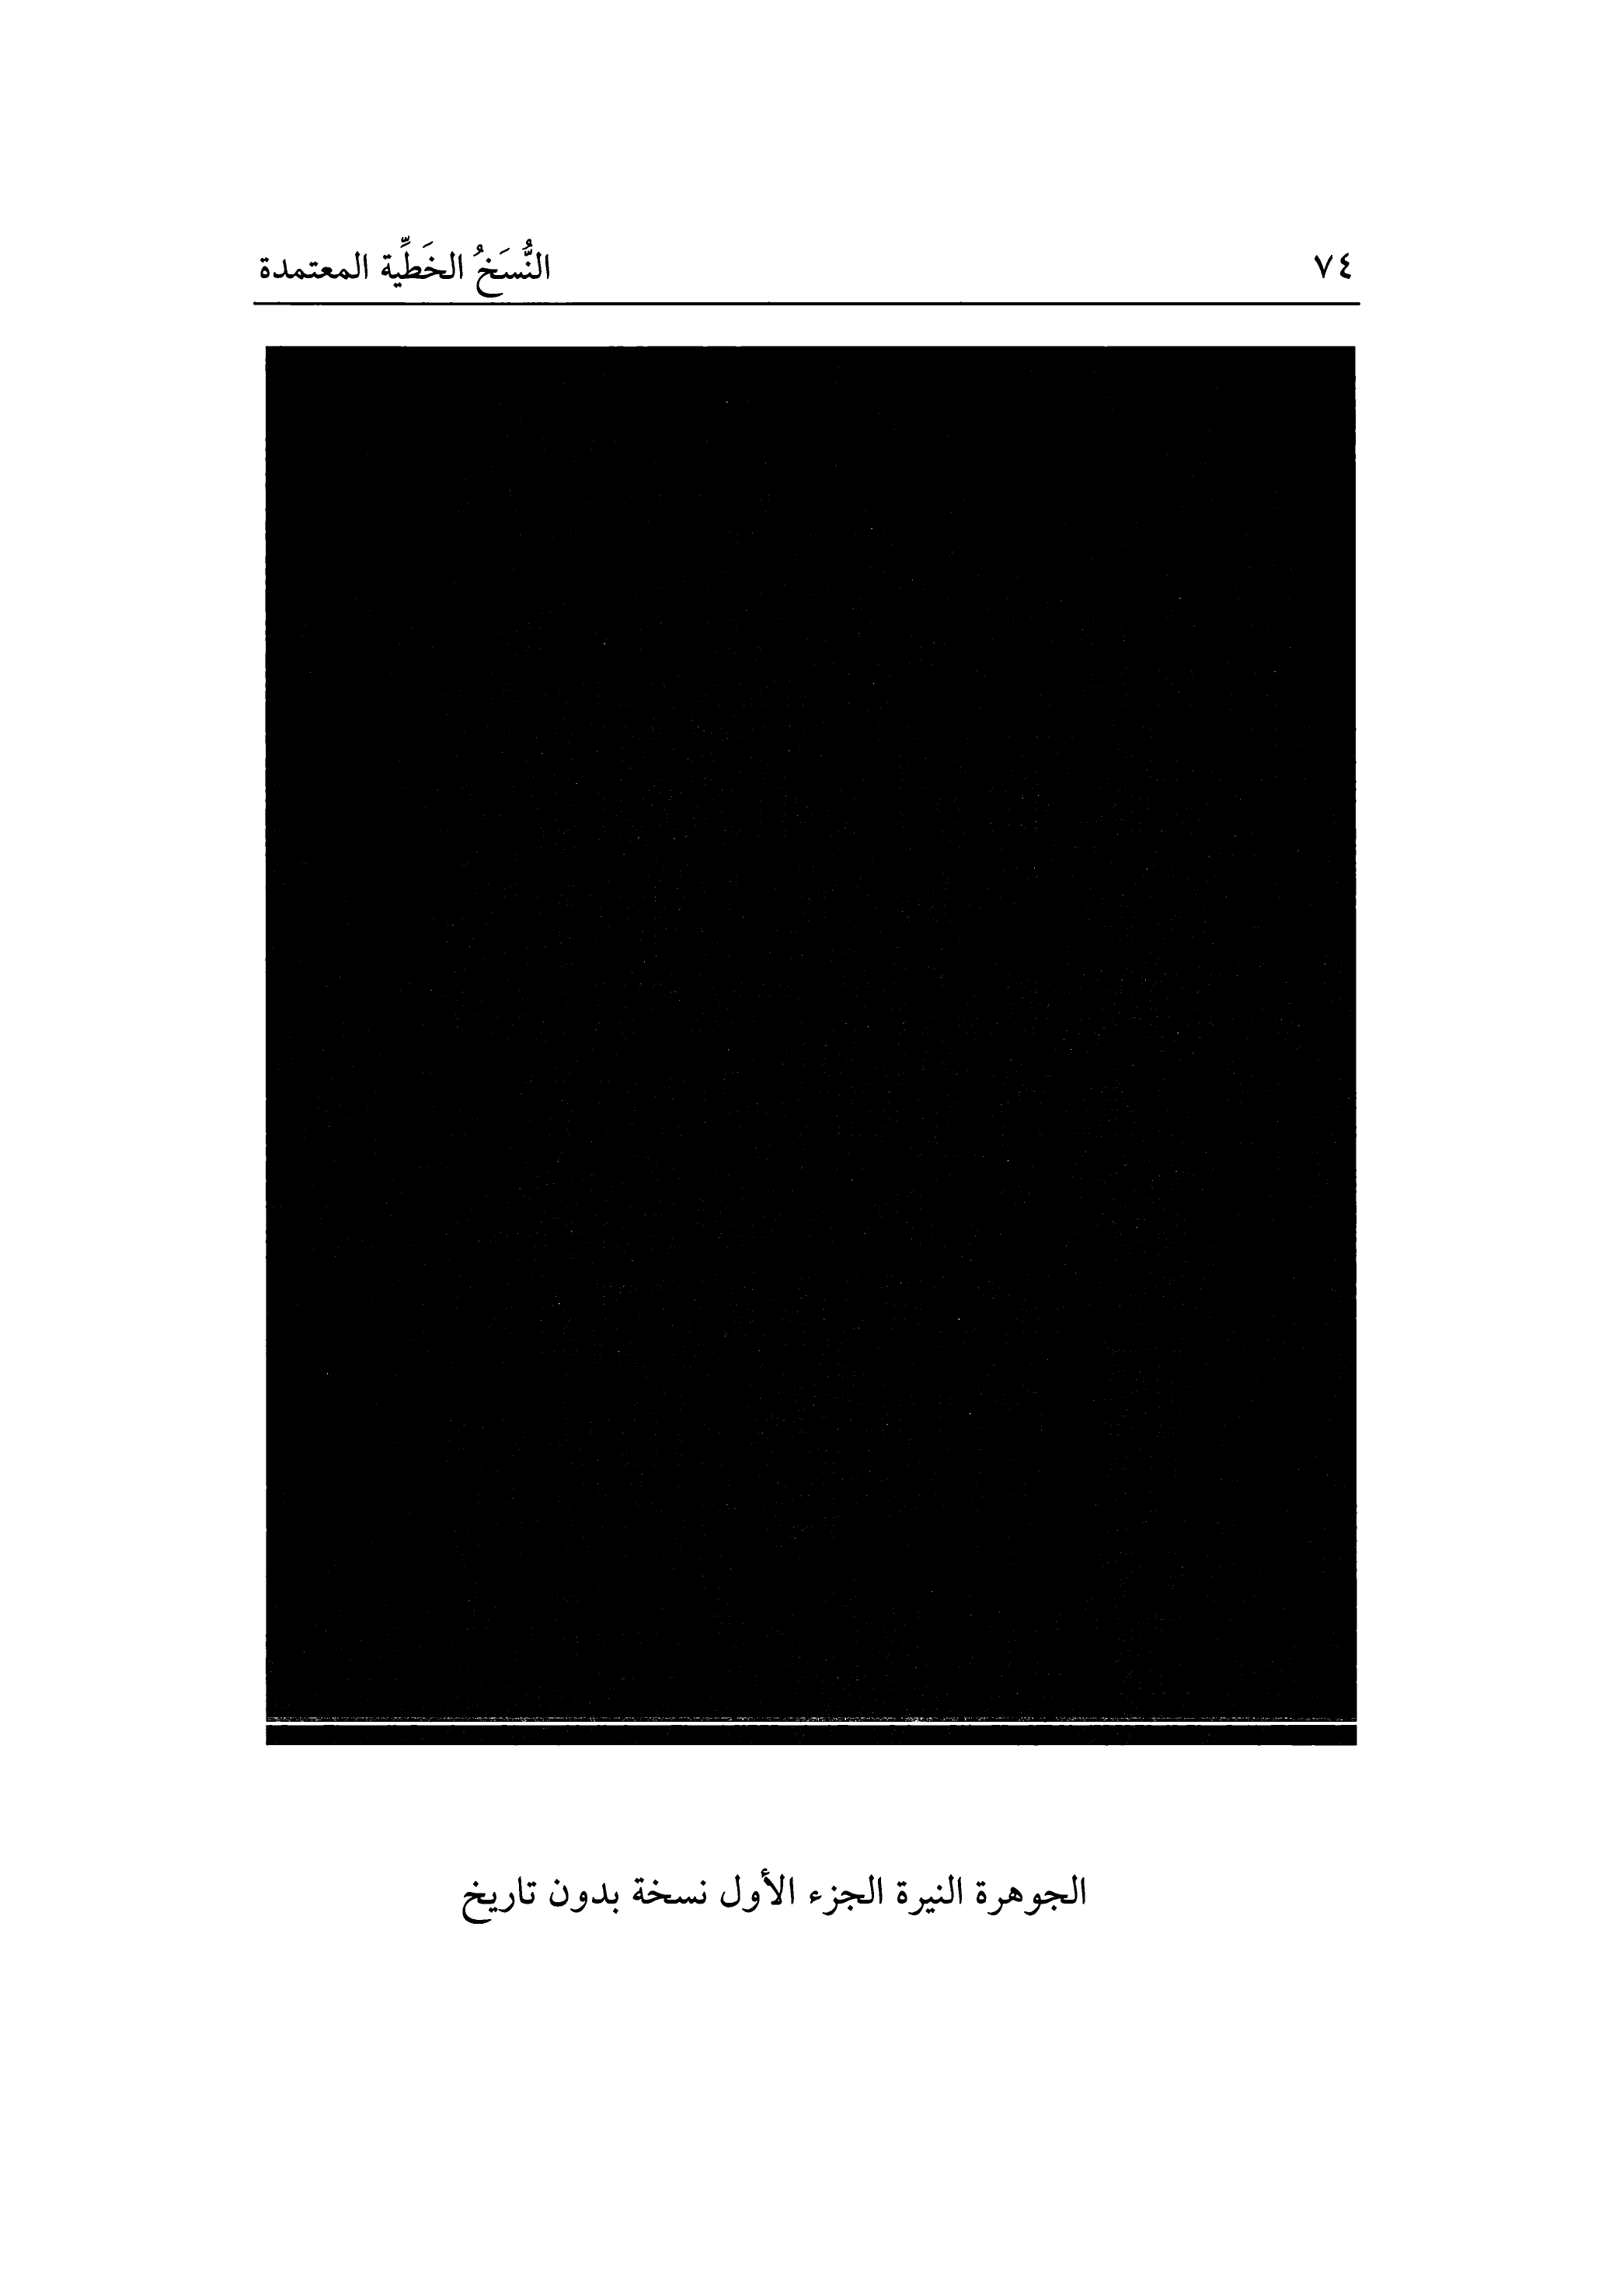 ٧٤
النُّسَخُ الخَطِّية المعتمدة
الجوهرة النيرة الجزء الأول نسخة بدون تاريخ